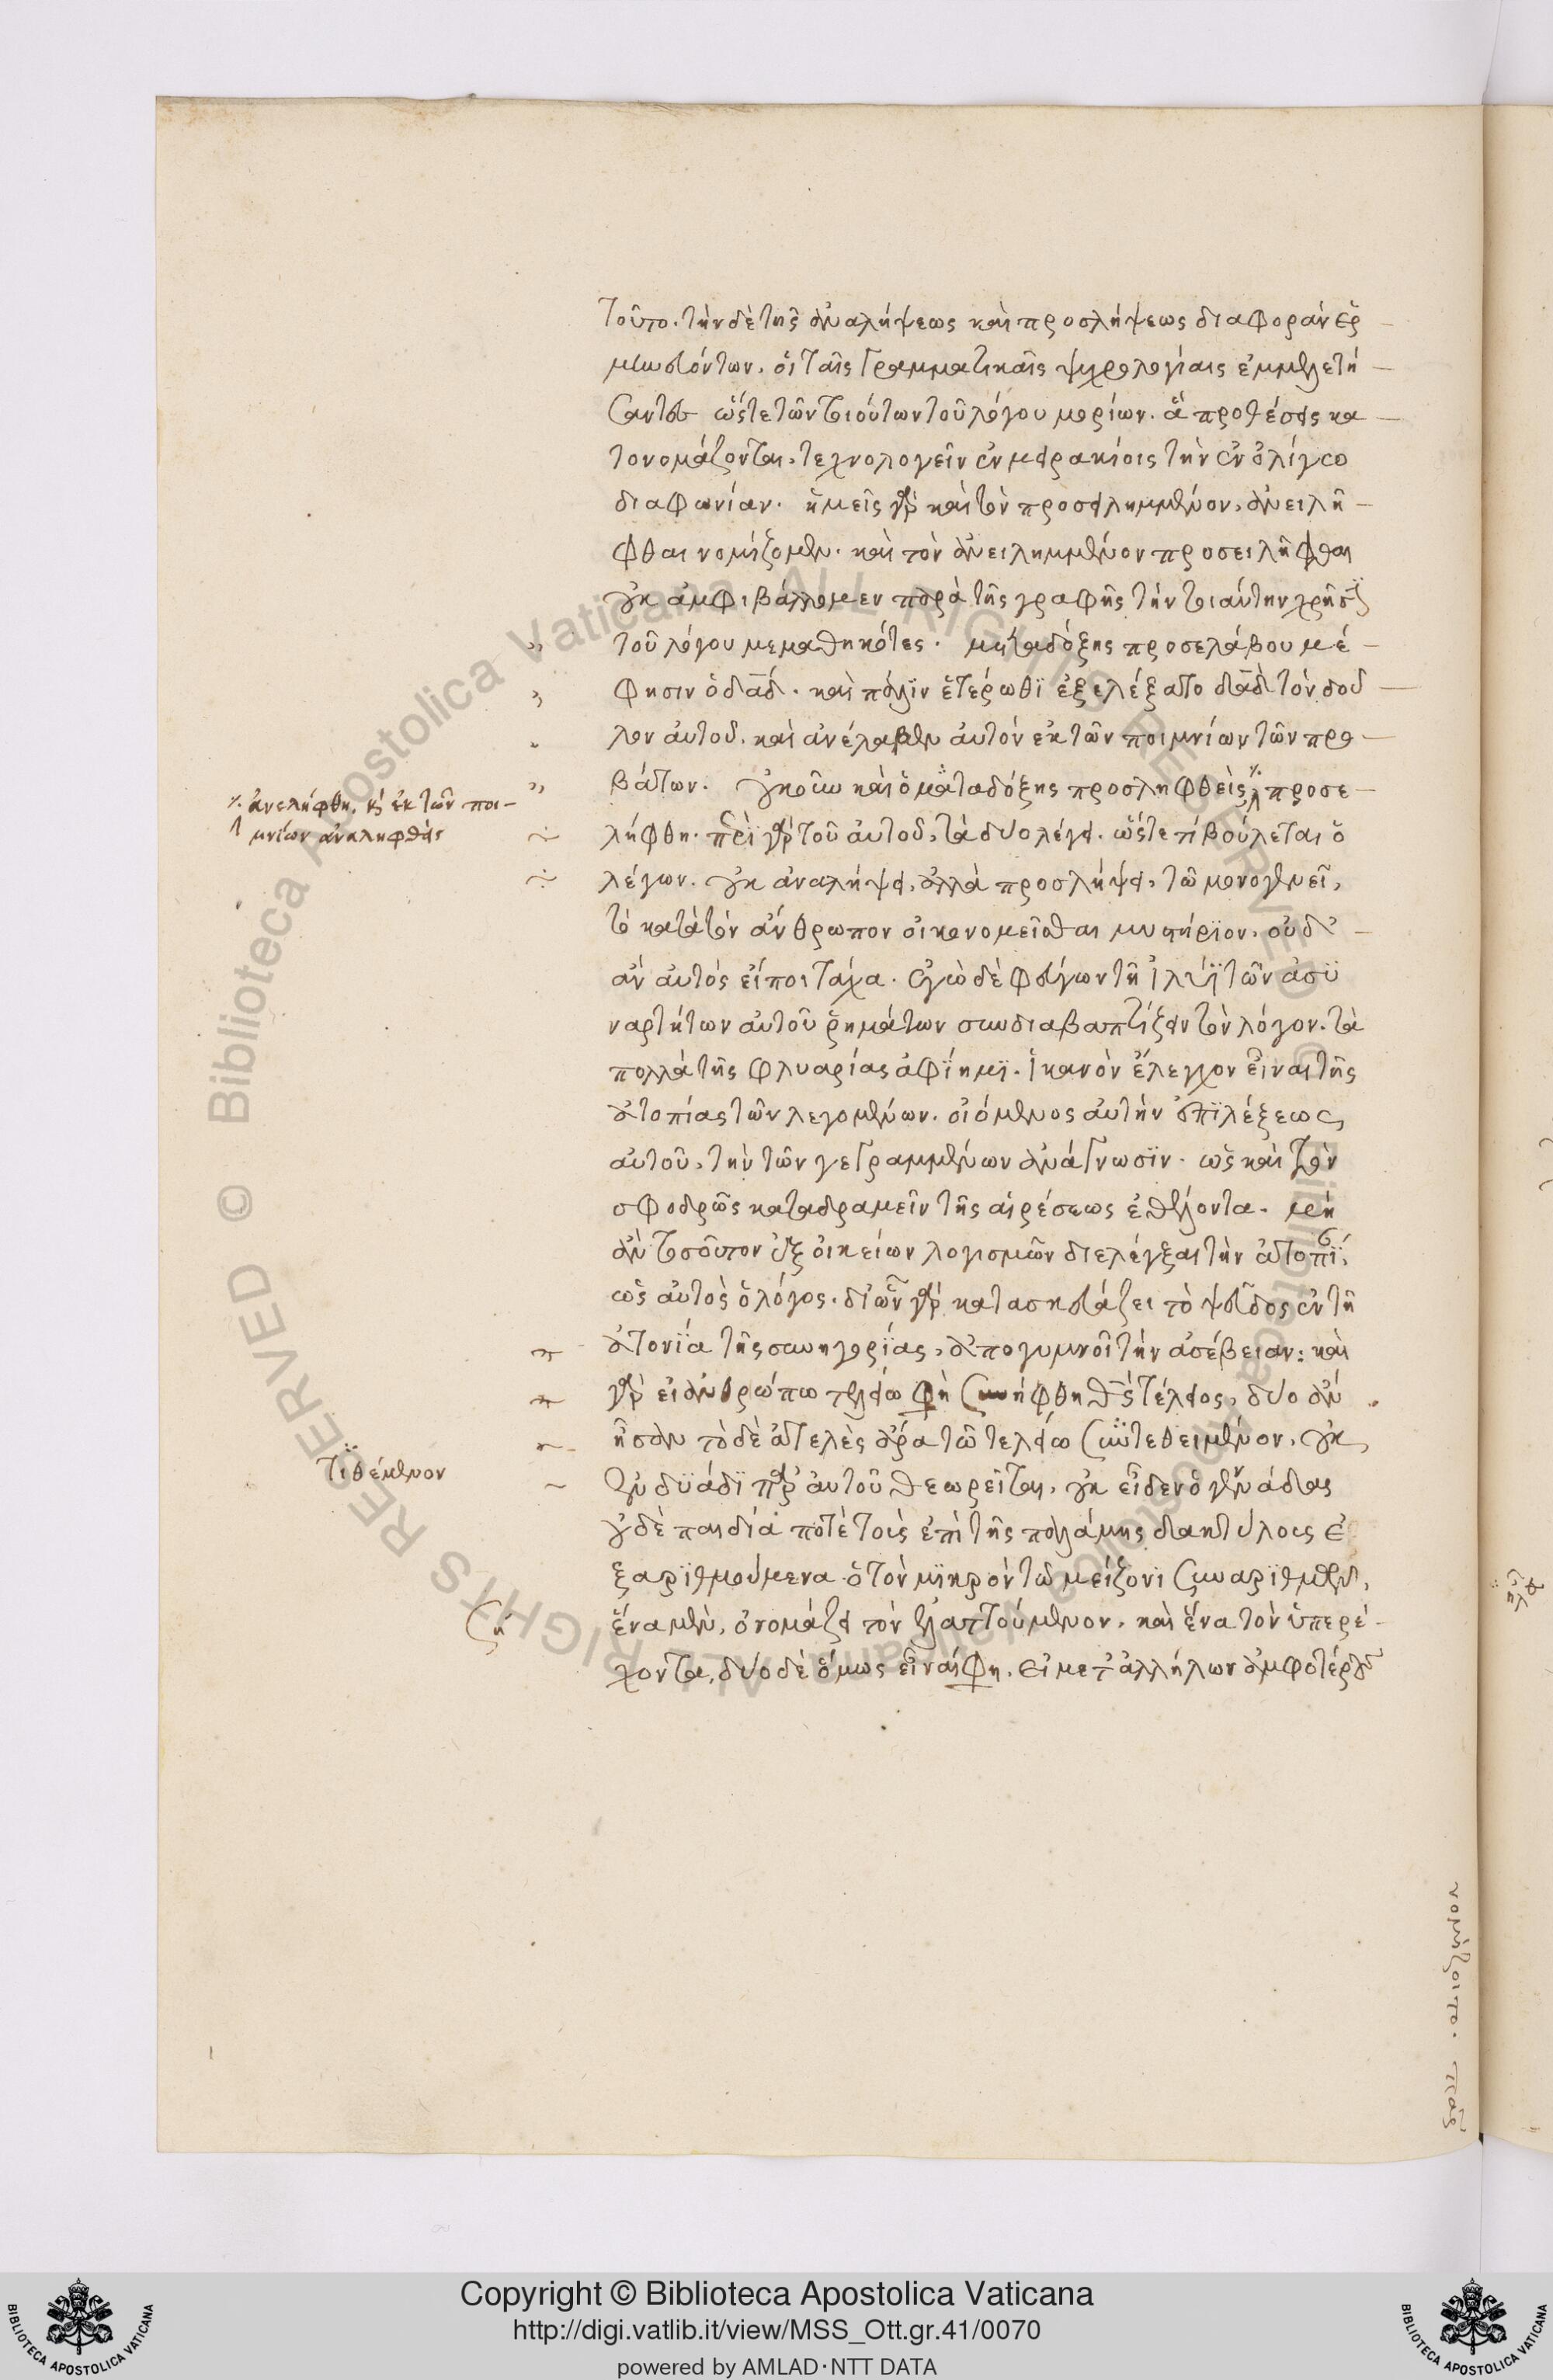 τοῦτο. τὴν δὲ τῆς ἀναλήψεως καὶ προσλήψεως διαφορὰν ἑρ
μηνευόντων. οἱ ταῖς γραμματικαῖς ψυχρολογίαις ἐμμελετή
σαντες ὥστε τῶν τοιούτων τοῦ λόγου μορίων. ἃ προθέσεις κα
τονομάζονται. τεχνολογεῖν ἐν μειρακίοις τὴν ἐν ὀλίγω
διαφωνίαν. ἡμεῖς γὰρ καὶ τὸν προσειλημμένον, ἀνειλῆ
φθαι νομίζομεν. καὶ τὸν ἀνειλημμένον προσειλῆφθαι
οὐκ ἀμφιβάλλομεν παρὰ τῆς γραφῆς τὴν τοιαύτην χρῆσιν
τοῦ λόγου μεμαθηκότες. μετὰ δόξης προσελάβου μέ
φησιν ὁ δᾱδ. καὶ πάλιν ἑτέρωθι ἐξελέξατο δᾱδ τὸν δοῦ
λον αὐτοῦ. καὶ ἀνέλαβεν αὐτὸν ἐκ τῶν ποιμνίων τῶν προ
βάτων. οὐκοῦν καὶ ὁ μετὰ δόξης προσληφθεὶς προσε
λήφθη. περὶ γὰρ τοῦ αὐτοῦ, τὰ δύο λέγει. ὥστε τί βούλεται ὁ
λέγων. οὐκ ἀναλήψει, ἀλλὰ προσλήψει, τῶ μονογενεῖ,
τὸ κατὰ τὸν ἄνθρωπον οἰκονομεῖσθαι μυστήριον. οὐδ'
ἂν αὐτὸς εἴποι τάχα. ἐγὼ δὲ φεύγων τῆ ἰλύϊ τῶν ἀσυ
ναρτήτων αὐτοῦ ῥημάτων συνδιαβαπτίζειν τὸν λόγον. τὰ
πολλὰ τῆς φλυαρίας ἀφίημι. ἱκανὸν ἔλεγχον εἶναι τῆς
ἀτοπίας τῶν λεγομένων. οἰόμενος αὐτὴν ἐπὶ λέξεως
αὐτοῦ, τὴν τῶν γεγραμμένων ἀνάγνωσιν. ὡς καὶ τὸν
σφοδρῶς καταδραμεῖν τῆς αἱρέσεως ἐθέλοντα. μὴ
ἂν τοσοῦτον ἐξ οἰκείων λογισμῶν διελέγξαι τὴν ἀτοπί,
ὡς αὐτὸς ὁ λόγος. δι' ὧν γὰρ κατασκευάζει τὸ ψεῦδος ἐν τῆ
ἀτονία τῆς συνηγορίας, ἀπογυμνοῖ τὴν ἀσέβειαν: καὶ
γὰρ εἰ ἀνθρώπω τελείω φὴ συνήφθη θς τέλειος, δύο ἂν
ἦσαν τὸ δὲ ἀτελὲς ἄρα τῶ τελείω συντεθειμένον, οὐκ
ἐν δυάδι παρ' αὐτοῦ θεωρεῖται, οὐκ εἶδεν ὁ γεννάδας
οὐδὲ παιδία ποτὲ τοῖς ἐπὶ τῆς παλάμης δακτύλοις ἐ
ξαριθμούμενα. ὁ τὸν μικρὸν τῶ μείζονι συναριθμῶν,
ἕνα μὲν, ὀνομάζει τὸν ἐλαττούμενον. καὶ ἕνα τὸν ὑπερέ
χοντα, δύο δὲ ὅμως εἶναί φη. εἰ μετ' ἀλλήλων ἀμφοτέρους
ἀνελήφθη, καὶ ἐκ τῶν ποι-
μνίων ἀναληφθεὶς
τιθέμενον
ζή
νομίζοιτο. πῶς
Copyright © Biblioteca Apostolica Vaticana
http://digi.vatlib.it/view/MSS_Ott.gr.41/0070
powered by AMLAD·NTT DATA